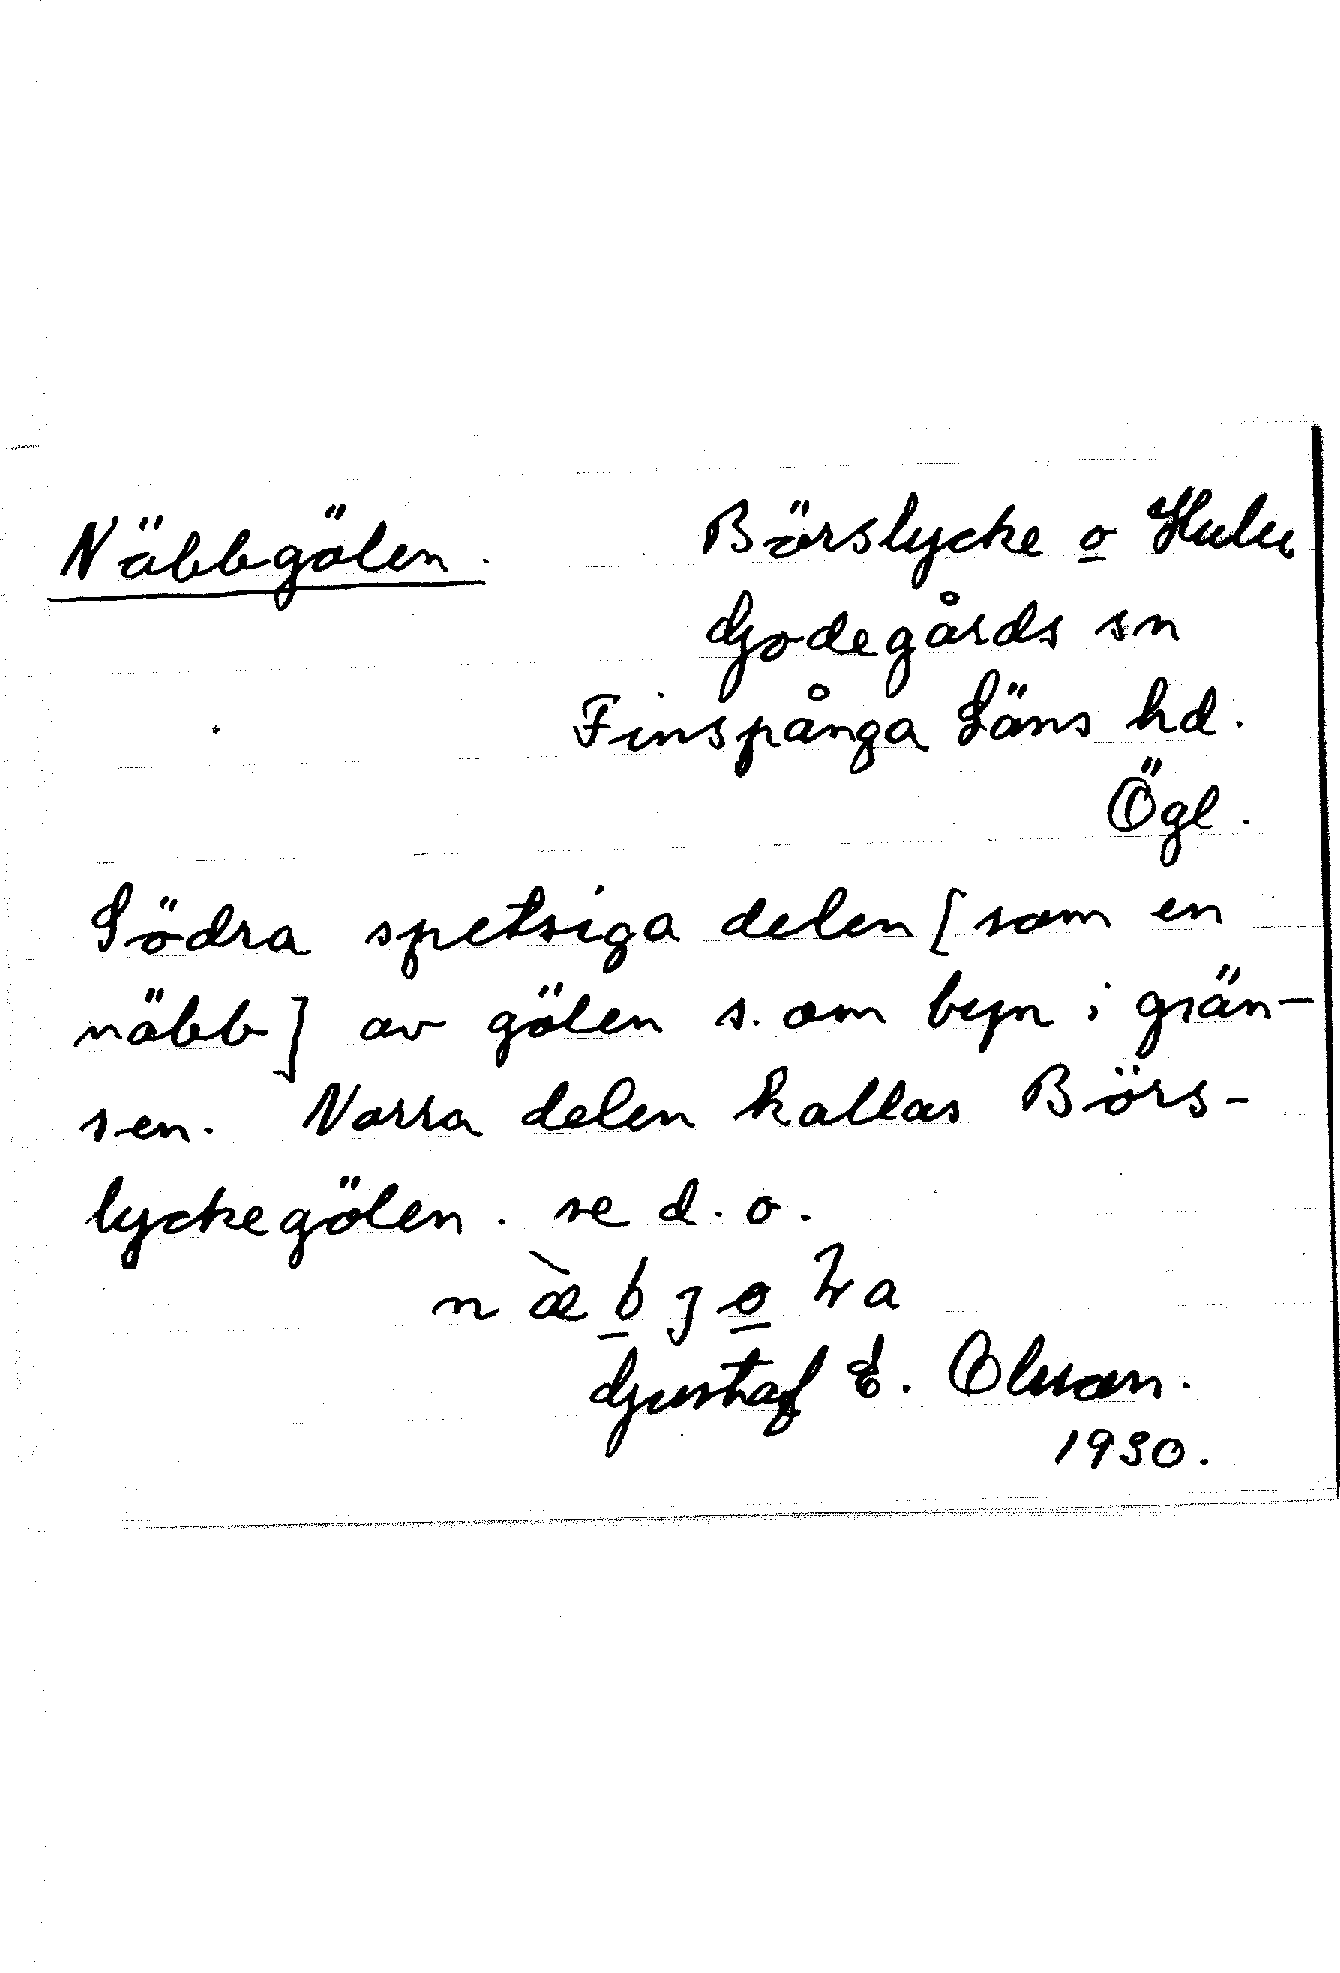 Näbbgölen. Börslycke o Hulu
Godegårds sn
Finspånga Läns hd.
Ögl.
Södra spetsiga delen [som en
näbb] av gölen s. om byn i grän-
sen. Norra delen kallas Börs-
lyckegölen. se d. o.
Gustaf E. Olsson.
1930.